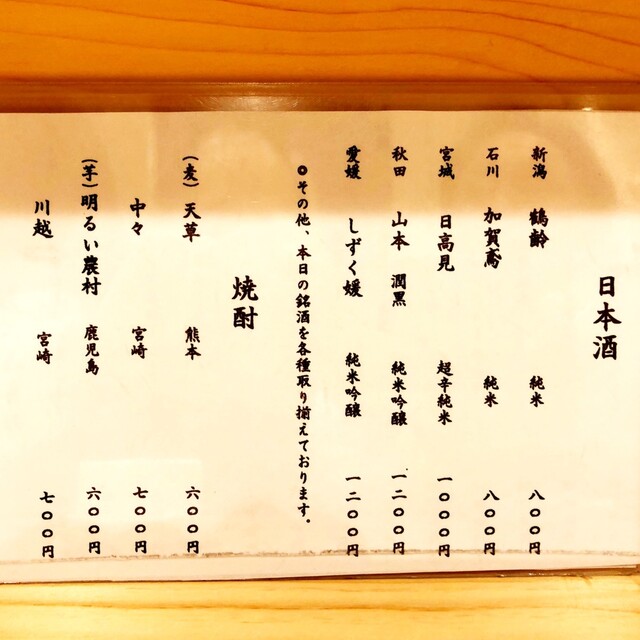 日本酒
新潟 鶴齢 純米 八〇〇円
石川 加賀鳶 純米 八〇〇円
宮城 日高見 超辛純米 一〇〇〇円
秋田 山本 潤黒 純米吟醸 一二〇〇円
愛媛 しずく媛 純米吟醸 一二〇〇円
◎その他、本日の銘酒を各種取り揃えております。
焼酎
(麦) 天草 熊本 六〇〇円
中々 宮崎 七〇〇円
(芋) 明るい農村 鹿児島 六〇〇円
川越 宮崎 七〇〇円